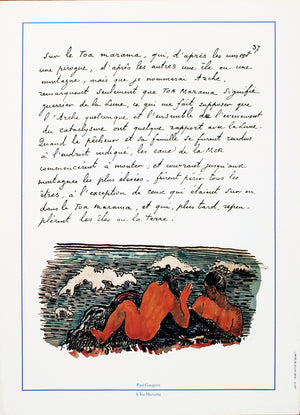 37
Sur le Toa marama, qui, d'après les uns est
une pirogue, d'après les autres une île ou une
montagne, mais que je nommerai Arche,
remarquant seulement que Toa Marama signifie
guerrier de la Lune, ce qui me fait supposer que
l'Arche quelconque et l'ensemble de l'évènement
du cataclysme ont quelque rapport avec la Lune.
Quand le pêcheur et sa famille se furent rendus
à l'endroit indiqué, les eaux de la Mer
commencèrent à monter; et couvrant jusqu'aux
montagnes les plus élevées, firent périr tous les
êtres, à l'exception de ceux qui étaient sur ou
dans le Toa marama, et qui, plus tard, repeu-
plèrent les îles ou la terre.
Paul Gauguin